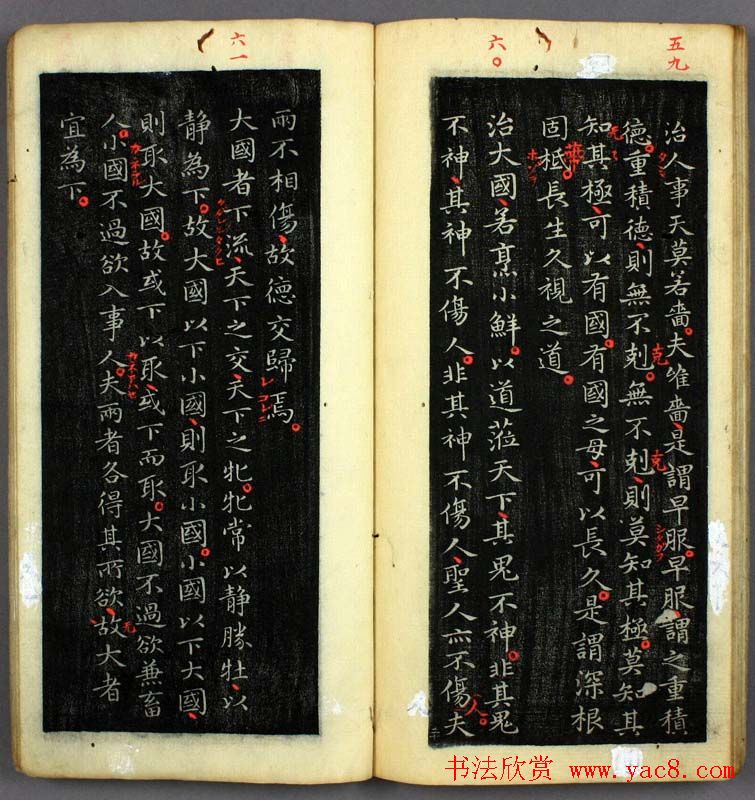 五九
治人事天莫若嗇夫唯嗇是謂早服早服謂之重積
德重積德則無不剋無不剋則莫知其極莫知其
知其極可以有國有國之母可以長久是謂深根
固柢長生久視之道
克
克
六〇
治大國若烹小鮮以道蒞天下其鬼不神非其鬼
不神其神不傷人非其神不傷人聖人亦不傷夫
人
兩不相傷故德交歸焉
六一
大國者下流天下之交天下之牝牝常以静勝牡以
静為下故大國以下小國則取小國小國以下大國
則取大國故或下以取或下而取大國不過欲兼畜
人小國不過欲入事人夫兩者各得其所欲故大者
宜為下
书法欣赏 www.yac8.com